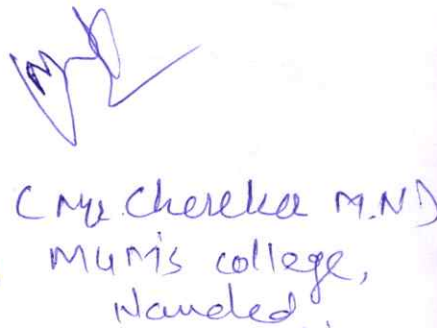 (Mr. Chereka M.N)
college,
Nanded.